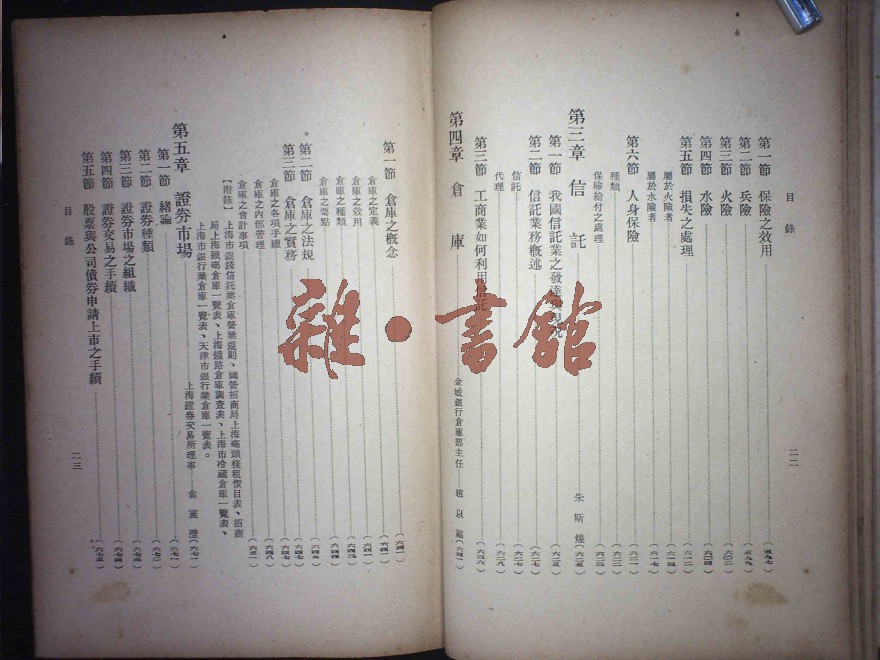 目錄
第一節 保險之效用 (五九七)
第二節 兵險 (五九九)
第三節 火險 (六〇二)
第四節 水險 (六〇四)
第五節 損失之處理 (六一二)
屬於火險者
屬於水險者 (六一七)
第六節 人身保險 (六二一)
種類
保險給付之處理 (六二三)
第三章 信託 朱斯煌 (六二五)
第一節 我國信託業之發達 (六二五)
第二節 信託業務概述 (六二七)
信託 (六二七)
代理 (六二八)
第三節 工商業如何利用信託 (六三六)
第四章 倉庫 金城銀行倉庫部主任 趙以 (六四一)
二二
第一節 倉庫之概念 (六四一)
倉庫之定義 (六四一)
倉庫之效用
倉庫之種類
倉庫之要點 (六四五)
第二節 倉庫之法規 (六四六)
第三節 倉庫之實務 (六四七)
倉庫之各項手續 (六四八)
倉庫之內部管理
倉庫之會計事項 (六五一)
【附錄】上海市銀錢信託業倉庫營業規則、國營招商局上海碼頭棧租價目表、招商
局上海碼頭倉庫一覽表、上海鐵路倉庫調查表、上海市冷藏倉庫一覽表、
上海市銀行業倉庫一覽表、天津市銀行業倉庫一覽表。
第五章 證券市場 上海證券交易所理事 俞寰澄 (六七一)
第一節 緒論 (六七一)
第二節 證券種類 (六七二)
第三節 證券市場之組織 (六七三)
第四節 證券交易之手續 (六七四)
第五節 股票與公司債券申請上市之手續 (六七五)
目錄
二三
雜·書館